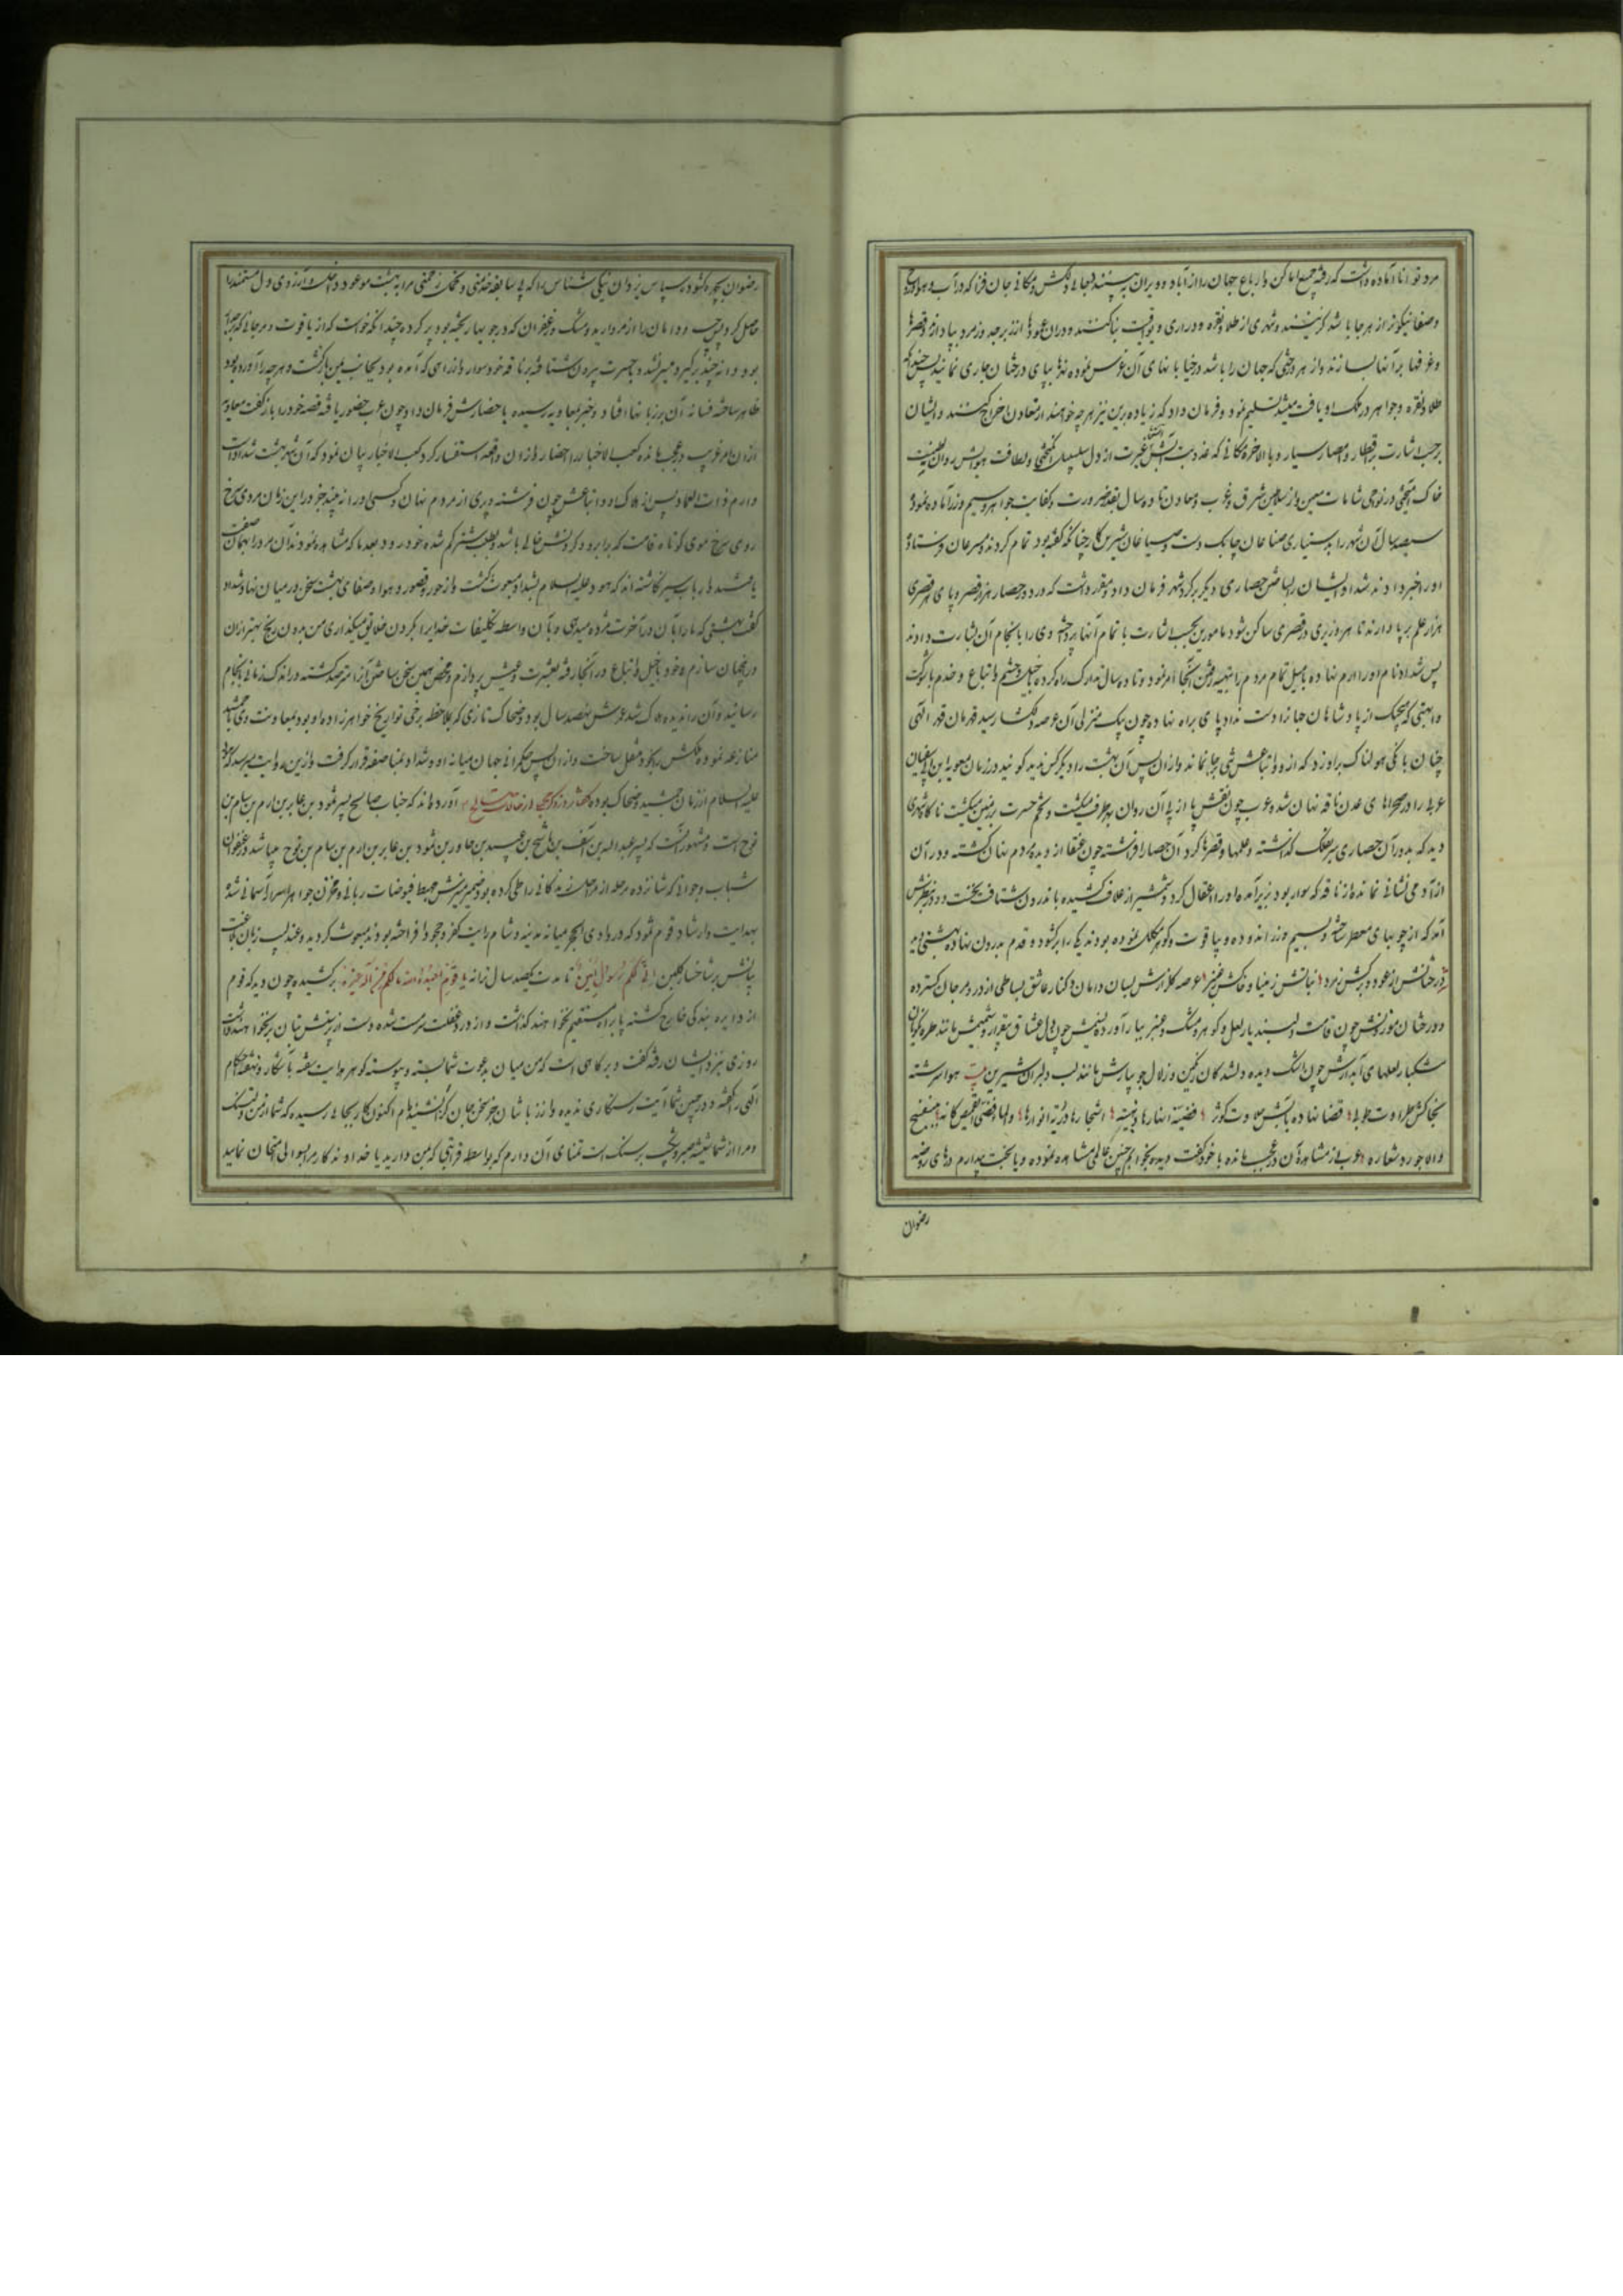 مرد توانا آماده داشت که رفته جمیع اماکن و ارباع جهان را از آباد و ویران به بینند و بجائی دلکش و مکانی جان فزا که در آب و هوا
و صفا نیکوتر از هر جا باشد گزینند و شهری از طلا و نقره و دراری و یواقیت بنا کنند و در آن عمودها از زبرجد و زمرد بپا دارند و قصرها
و غرفها بر آنها بسازند و از هر درختی که جهان را باشد در خیابانهای آن غرس نموده نهرها بپای درختان جاری نمایند پس چندانکه
طلا و نقره و جواهر در ملک او یافت میشد تسلیم نمود و فرمان داد که زیاده برین نیز هر چه خواهند از معادن اخراج کنند و ایشان
برحسب اشارت در اقطار و امصار سیار و بالاخره مکانی که عذوبت آبش غیرت از دل سلسبیل انگیختی و لطافت هوایش روان
خاک بیختی در نواحی شامات معین و از سلاطین شرق و غرب و معادن تا ده سال بقدر ضرورت و کفایت جواهر و سیم و زر آماده نمود و
سیصد سال آن شهر را بدستیاری صناعان چابک دست و صباغان شیرین کار چنانکه گفته بود تمام کردند و مسرعان فرستاده
او را خبر دادند شداد ایشان را بساختن حصاری دیگر برگرد شهر فرمان داد و مقرر داشت که در دور حصار هزار قصر و بپای هر قصری
هزار علم برپا دارند تا هر وزیری در قصری ساکن شود مامورین بحسب اشارت با تمام آنها پرداخته وی را بانجام آن بشارت دادند
پس شداد نام او را ارم نهاده بالمیل تمام مردم را بتهیه رفتن آنجا امر نمود و تا ده سال تدارک راه کرده با خیل و حشم و اتباع و خدم با شوکت
و ابهتی که هیچیک از پادشاهان جهان را دست نداد پای براه نهاده چون یک منزلی آن عرصه دلکشا رسید قهرمان قدر الهی
چنان بانگی هولناک براو زد که از وی و اتباعش شیئی بجا نماند و از آن پس آن بهشت را دیگر کس ندید گویند در زمان معویه ابن ابی سفیان
عربی را در صحرای عدن ناقه نهان شد و عرب چون نقش پا از پی آن روان بهر طرف میگشت و تخم حسرت بزمین میکشت تا گاه شهری
دید که بدور آن حصاری سر بفلک گذاشته و علمها و قصرها گرد آن حصار افراشته چون عنقا از دیده مردم نهان گشته و در آن
از آدمی نشانی نمانده از ناقه که سوار بود بزیر آمده او را عقال کرد و شمشیر از غلاف کشیده باندرون شتافت نخست دو در بنظرش
آمد که از چوبهای معطر ساخته و بسیم و زر اندوده و بیاقوت و گوهر مکلل نموده بودند یکی را برگشود و قدم بدرون نهاد بهشتی دید
درختانش از عود و برگش زمرد نباتش ز مینا و خاکش ز عنبر عرصه گلزارش بسان دامان و کنار عاشق بساطی از در و مرجان گسترده
و درختان موزونش چون قامت دلبسند یار لعل و گوهر و مشک و عنبر ببار آورده نسیمش چون دل عشاق بیقرار و شمیمش مانند طره نگویان
مشکبار لعلهای آبدارش چون اشک دیده دلشدگان رنگین و زلال جویبارش مانند لب دلبران شیرین بیت هوا سرشته
بخاکش طراوت طوبی قضا نهاده بآبش حلاوت کوثر
و الاجوره شعاره عرب از مشاهده آن در عجب مانده با خود گفت دیده بخوابم چنین عالمی مشاهده نموده و یا بخت بیدارم درهای روضه
رضوان
رضوان بچهره گشوده سپاس یزدان نیکی شناس را که بی سابقه خدمتی و تحمل زحمتی مرا به بهشت موعود داخل ساخت و آرزوی دل مستمند را
حاصل کرد پس جیب و دامان را از مروارید و مشک و زعفران که در جویبار ریخته بود پر کرده چندانکه خواست که از یاقوت و مرجانی که
بود دانه چند برگیرد میسر نشد و بحسرت بیرون شتافته بر ناقه خود سوار و از راهی که آمده بود بجانب یمن بازگشت و هر چه را آورده بود
ظاهر ساخته فسانه آن بر زبانها افتاد و خبر بمعاویه رسیده باحضارش فرمان داد و چون عرب حضور یافته قصه خود را بازگفت معاویه
از آن امر غریب در عجب مانده کعب الاحبار را احضار و از آن واقعه استفسار کرد کعب الاحبار بیان نمود که آن شهر بهشت شداد است
و ارم ذات العماد پس از هلاک او و اتباعش چون فرشته و پری از مردم نهان و کسی او را نه بیند جز در این زمان مردی سرخ
روی سرخ موی کوتاه قامت که بر ابرو و گردنش خالی باشد و بطلب شتر گم شده خود رود بعد ما که مشاهده نمودند آن مرد را بهمان صفت
یافتند ارباب سیر نگاشته اند که هود علیه السلام بشداد مبعوث گشت و از حور و قصور و هوا و صفای بهشت سخن در میان نهاد شداد
گفت بهشتی که ما را بآن در آخرت مژده میدهی و بآن واسطه تکلیفات خدایرا بگردن خلایق میگذاری من بدون رنج بهتر از آن
در جهان سازم و خود با خیل و اتباع در آنجا رفته بعشرت و عیش پردازم و بمحض همین سخن ساختن آنرا مترصد گشته در اندک زمانی بانجام
رسانید و آن را ندیده هلاک شد عمرش نهصد سال بود و ضحاک تازی که بملاحظه برخی تواریخ خواهرزاده او بود بمعاونت وی با جمشید
منازعه نموده و ملکش را بخود منتقل ساخت و از آن پس حکمرانی جهان میانه او و شداد بمناصفه قرار گرفت و ازین روایت میرسد که هود
علیه السلام از زمان جمشید و ضحاک بوده آورده اند که جناب صالح پسر ثمود بن عابر بن ارم بن سام بن
نوح است و مشهور آنست که پسر عبید الله بن آسف بن ماشج بن عبید بن حاور بن ثمود بن عابر بن ارم بن سام بن نوح میباشد در عنفوان
شباب و جوانی که شانزده مرحله از مراحل زندگانی را طی کرده بود ضمیر منیرش مهبط فیوضات ربانی و مخزن جواهر اسرار آسمانی شده
بهدایت و ارشاد قوم ثمود که در وادی الحجر میانه مدینه و شام رایت کفر و جحود افراخته بودند مبعوث گردید و عندلیب زبان بلاغت
بیانش بر شاخسار تلقین انی لکم رسول امین تا مدت یکصد سال ترانه یا قوم اعبدوا الله ما لکم من اله غیره برکشیده چون دید که قوم
از دایره بندگی خارج گشته پا براه مستقیم نخواهند گذاشت و از درد غفلت سرمست شده دست از پرستش بتان برنخواهند داشت
روزی بنزد ایشان رفته گفت دیرگاهی است که من میان بدعوت شما بسته و پیوسته گوهر هدایت سفته بآشکار و نهفته احکام
الهی را گفته و در جبین شما آیت رستگاری ندیده و از زبان شما جز سخن کفر نشنیده ام اکنون کار بجائی رسیده که شما از من دلتنگ
و مرا از شما شیشه صبر و شکیب بر سنگ است تمنای آن دارم که بواسطه قرابتی که بمن دارید یا خداوندگار مرا بسؤالی امتحان نمایید